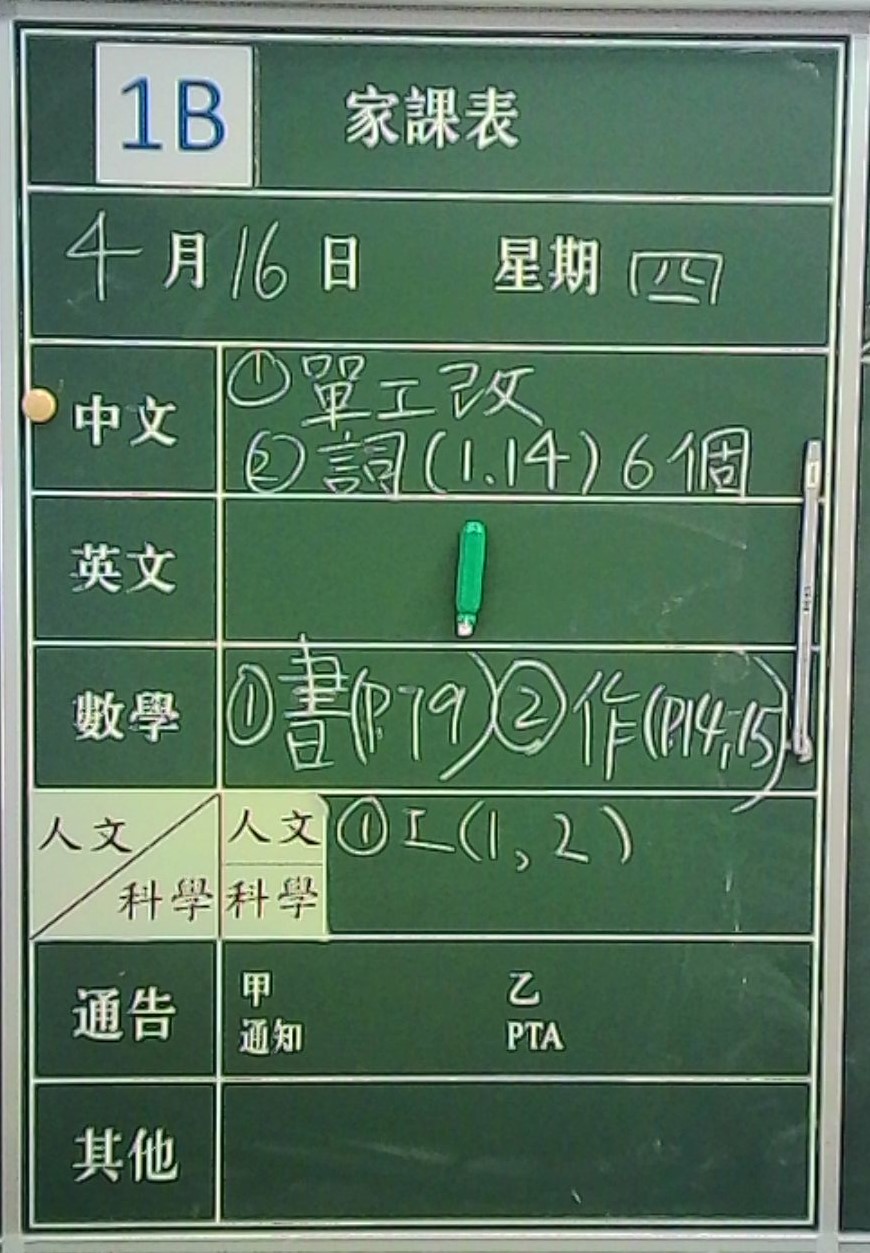 1B 家課表
4月16日 星期四
中文 ①單工改
②詞(1.14)6個
英文
數學 ①書(P.79)②作(P.14,15)
人文 人文 ①工(1,2)
科學 科學
通告 甲 乙
通知 PTA
其他